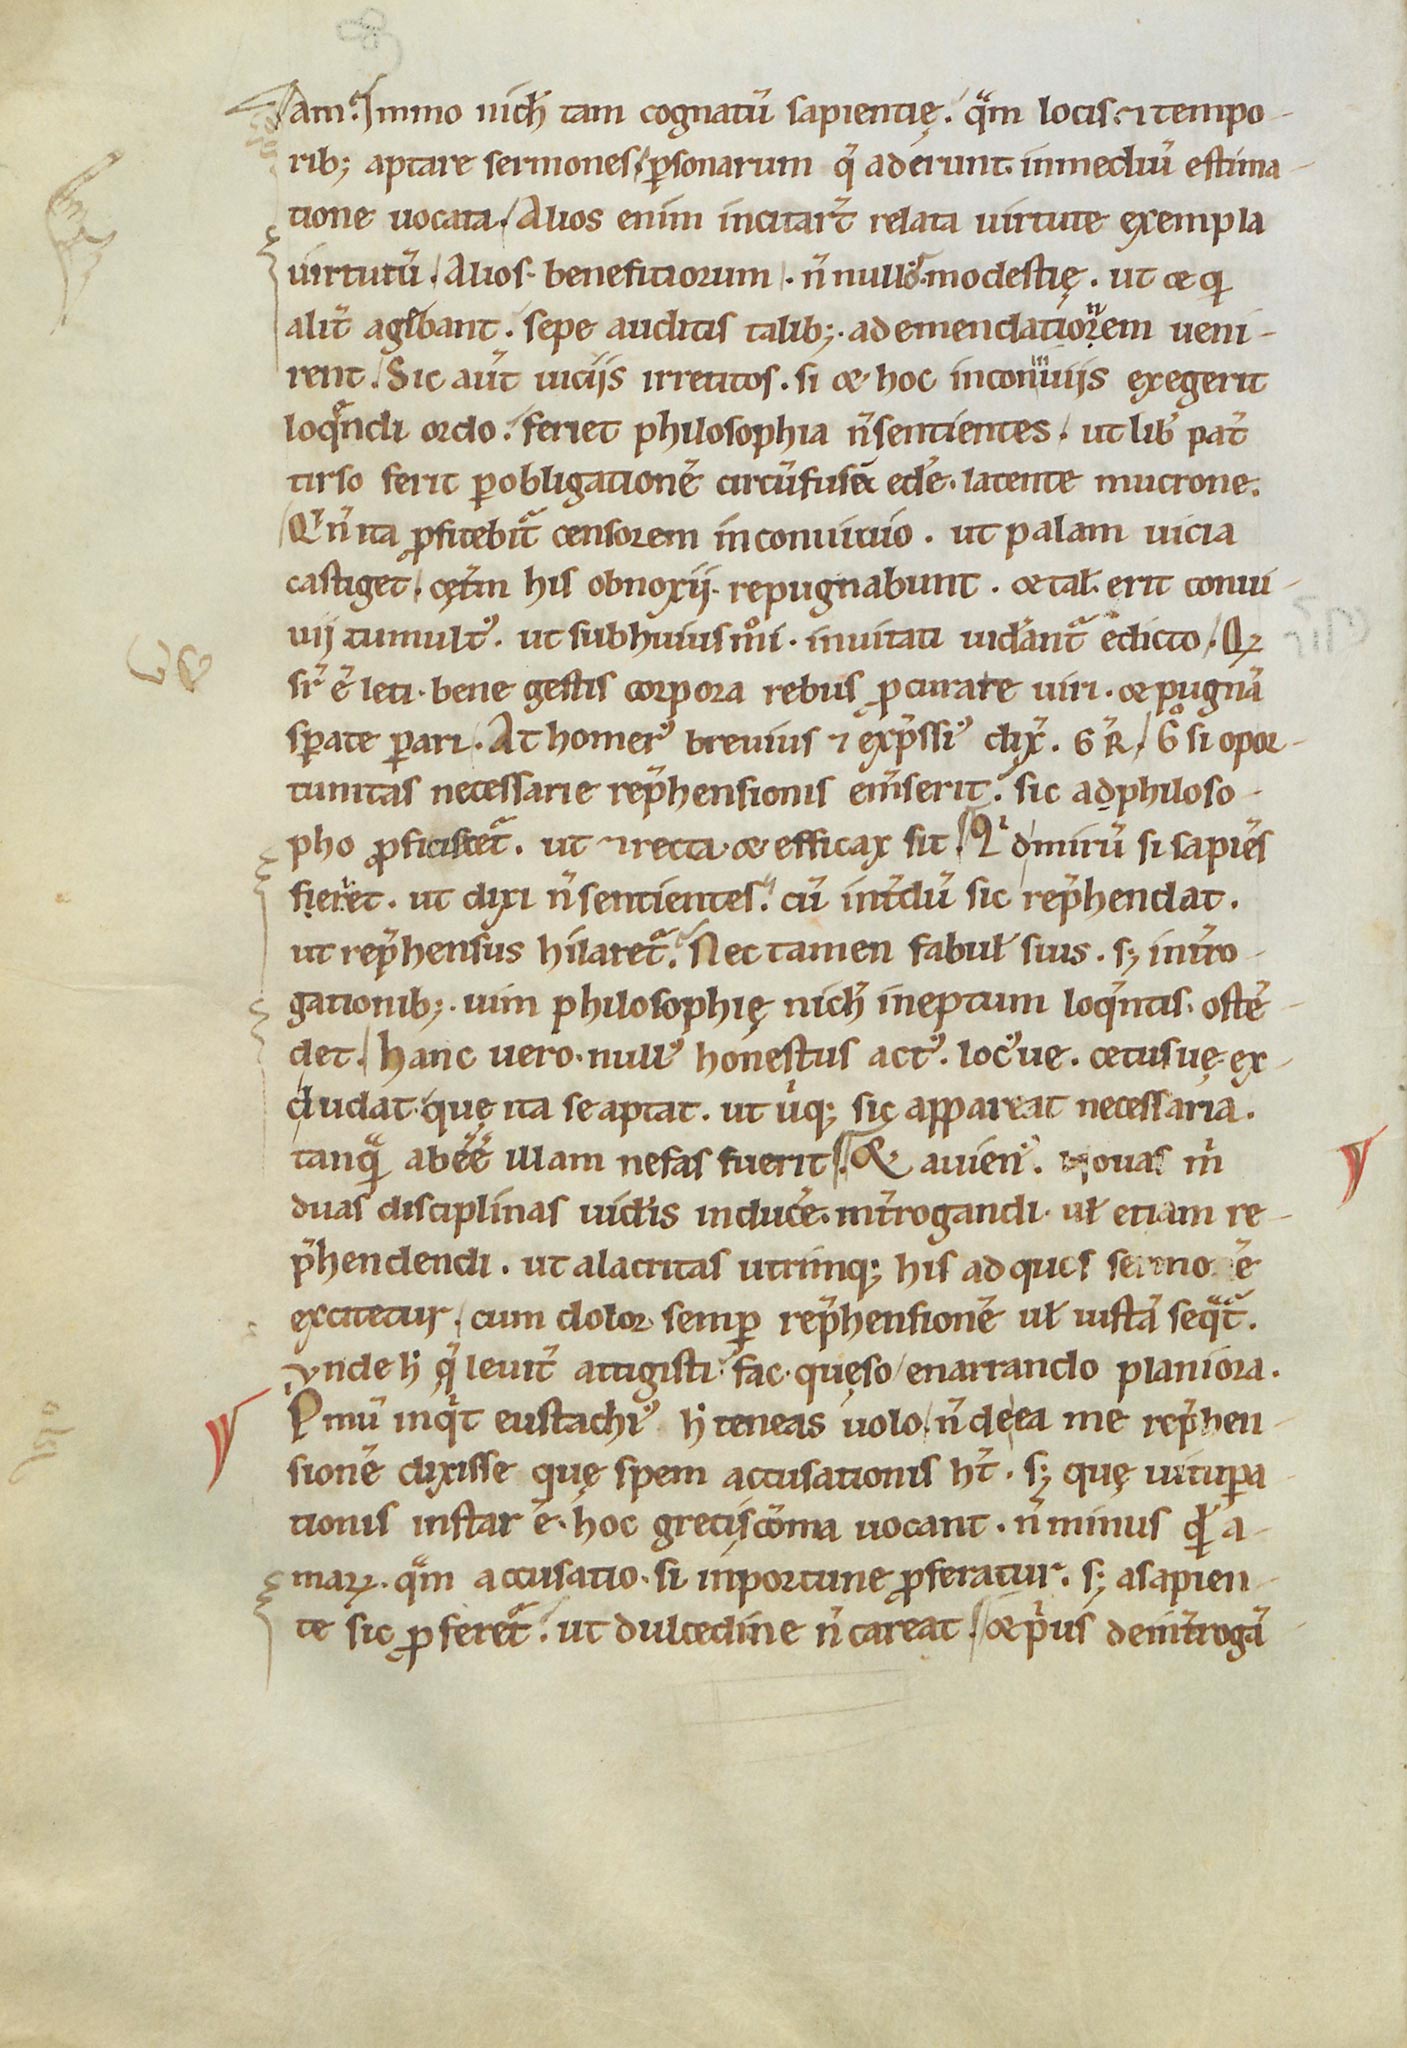 am. Immo nich̄ tam cognatū sapientię. qᵃm locis. ⁊ tempo-
rib; aptare sermones. ꝑsonarum q̄ aderunt in mediū estima-
tione uocata. Alios enim incitar̄t relata uirtute exempla
uirtutū. Alios benefitiorum. n̄ nullꝰ modestię. ut & qi
alit̄ agebant. sepe auditis talib; ad emendationem ueni-
rent. Sic aūt uiciis irretitos. si & hoc in conuiuiis exegerit
loqᵃndi ordo. feriet philosophia n̄ sentientes. ut lib̄ pat̄
tirso ferit ꝑ obligationē circūfusę edē. latente mucrone.
Qi n̄ ita ꝓfitebit̄ censorem in conuiuio. ut palam uicia
castiget. cęt̄m his obnoxii repugnabunt. & tal̄ erit conui-
uii tumultꝰ. ut sub huius mōi inuitati uidant̄ edicto. Qꝝ
sr̄ ē leti bene gestis corpora rebus ꝓcurate uiri. & pugnā
sꝑate ꝑari. At homerꝰ breuius ⁊ exp̄ssiꝰ dix̄. G R̄. Gᵒ si opor-
tunitas necessarie rep̄hensionis em̄serit. sic a philoso-
pho ꝓficiscet̄. ut ⁊ recta & efficax sit. Qⁱd mirū si sapiēs
fieret. ut dixi n̄ sentientes. cū int̄dū sic rep̄hendat.
ut rep̄hensus hilaret̄. Nec tamen fabul̄ suis. s; int̄ro-
gationib; uim philosophię nich̄ ineptum loqᵉntis ostē-
det. hanc uero nullꝰ honestus actꝰ. locꝰ ue. cetus uę ex-
cludat quę ita se aptat. ut uⁱq; sic appareat necessaria.
tanqᵃ abēē illam nefas fuerit. Et auienꝰ. nouas m̄
duas disciplinas uidēis inducē. int̄rogandi. ul̄ etiam re-
p̄hendendi. ut alacritas utrimq; his ad quos sermo ē
excitetur. cum dolor semꝑ rep̄hensionē ul̄ iustā seqᵃt̄.
vnde h̄ q̄ leuit̄ attigisti fac quęso enarrando planiora.
Pⁱmū inqⁱt eustachiꝰ h̄ teneas uolo n̄ de ea me rep̄hen-
sionē dixisse quę spem accusationis h̄t. s; quę uituꝑa-
tionis instar ē. hoc greci scōma uocant. n̄ minus qⁱd a-
maꝝ. qᵃm accusatio. si inportune ꝓferatur. s; a sapien-
te sic ꝓferet̄. ut dulcedine n̄ careat. & pⁱus de int̄rogā